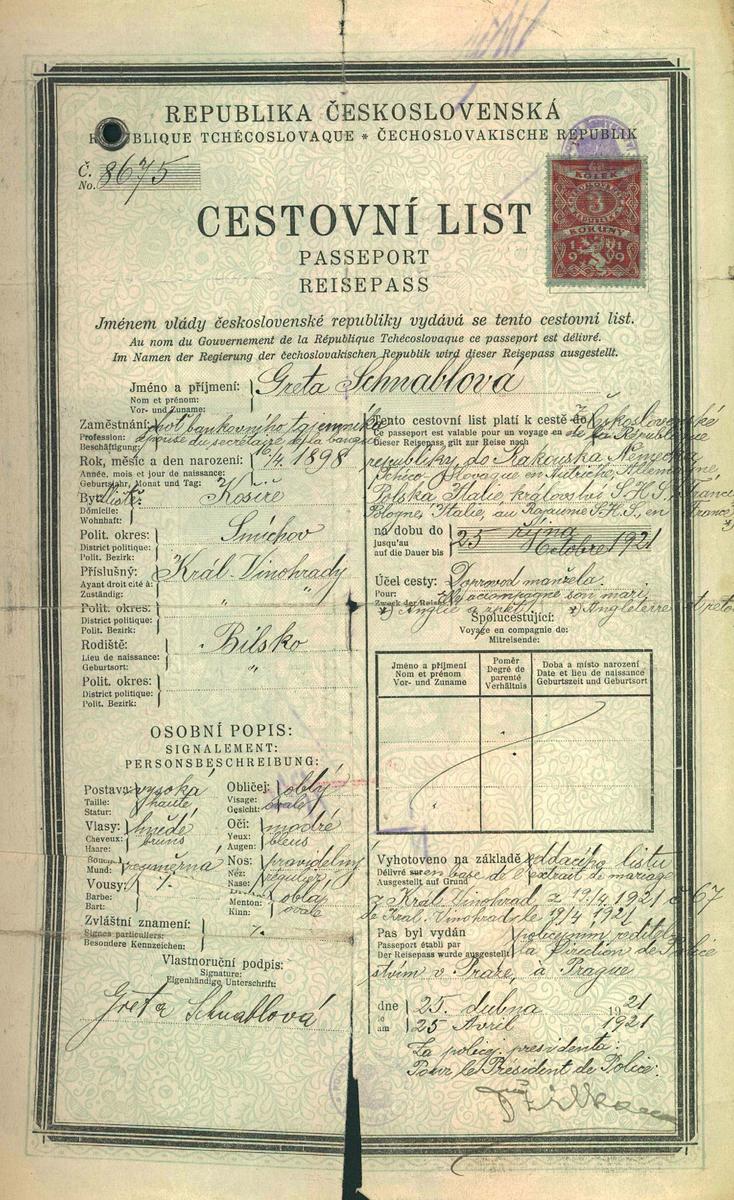 REPUBLIKA ČESKOSLOVENSKÁ
RÉPUBLIQUE TCHÉCOSLOVAQUE * ČECHOSLOVAKISCHE REPUBLIK
Č.
No. 8675
KOLEK
3
KORUNY
1919
CESTOVNÍ LIST
PASSEPORT
REISEPASS
Jménem vlády československé republiky vydává se tento cestovní list.
Au nom du Gouvernement de la République Tchécoslovaque ce passeport est délivré.
Im Namen der Regierung der čechoslovakischen Republik wird dieser Reisepass ausgestellt.
Jméno a příjmení: Greta Schnablová
Nom et prénom:
Vor- und Zuname:
Zaměstnání: choť bankovního tajemníka
Profession: épouse du secrétaire de la banque
Beschäftigung:
Rok, měsíc a den narození: 16/4. 1898
Année, mois et jour de naissance:
Geburtsjahr, Monat und Tag:
Bydliště: Košíře
Domicile:
Wohnhaft:
Polit. okres: Smíchov
District politique:
Polit. Bezirk:
Příslušný: Král. Vinohrady
Ayant droit cité à:
Zuständig:
Polit. okres: " "
District politique:
Polit. Bezirk:
Rodiště: Bílsko
Lieu de naissance:
Geburtsort: "
Polit. okres:
District politique:
Polit. Bezirk:
OSOBNÍ POPIS:
SIGNALEMENT:
PERSONSBESCHREIBUNG:
Postava: vysoká
Taille: haute
Statur:
Obličej: oblý
Visage: ovale
Gesicht:
Vlasy: hnědé
Cheveux: bruns
Haare:
Oči: modré
Yeux: bleus
Augen:
Bouche: rozměrná
Mund:
Nos: pravidelný
Nez: régulier
Nase:
Vousy: /.
Barbe:
Bart:
Menton: oblá
Kinn: ovale
Zvláštní znamení: /.
Signes particuliers:
Besondere Kennzeichen:
Vlastnoruční podpis:
Signature:
Eigenhändige Unterschrift:
Greta Schnablová
Tento cestovní list platí k cestě do Československé
Ce passeport est valable pour un voyage en de la République
Dieser Reisepass gilt zur Reise nach
republiky, do Rakouska Německa
Tchéco-slovaque en Autriche, Allemagne,
Polska Italie, království S.H.S., Francie
Pologne, Italie, au Royaume S.H.S., en France
na dobu do 25 října
jusqu'au
auf die Dauer bis Octobre 1921
Účel cesty: Doprovod manžela.
Pour: accompagne son mari
Zweck der Reise:
*) Anglie a zpět *) Angleterre et retour
Spolucestující:
Voyage en compagnie de:
Mitreisende:
Jméno a příjmení
Nom et prénom
Vor- und Zuname
Poměr
Degré de parenté
Verhältnis
Doba a místo narození
Date et lieu de naissance
Geburtszeit und Geburtsort
Vyhotoveno na základě oddacího listu
Délivré sur en base de l'extrait de mariage
Ausgestellt auf Grund
z Král. Vinohrad z 19/4 1921 č 67
de Král. Vinohrad le 19/4 1921
Pas byl vydán policejním ředitel-
Passeport établi par la Direction de Police
Der Reisepass wurde ausgestellt
stvím v Praze, à Prague
dne 25. dubna 1921
le
am 25 Avril 1921
Za policej. presidenta:
Pour le Président de Police: